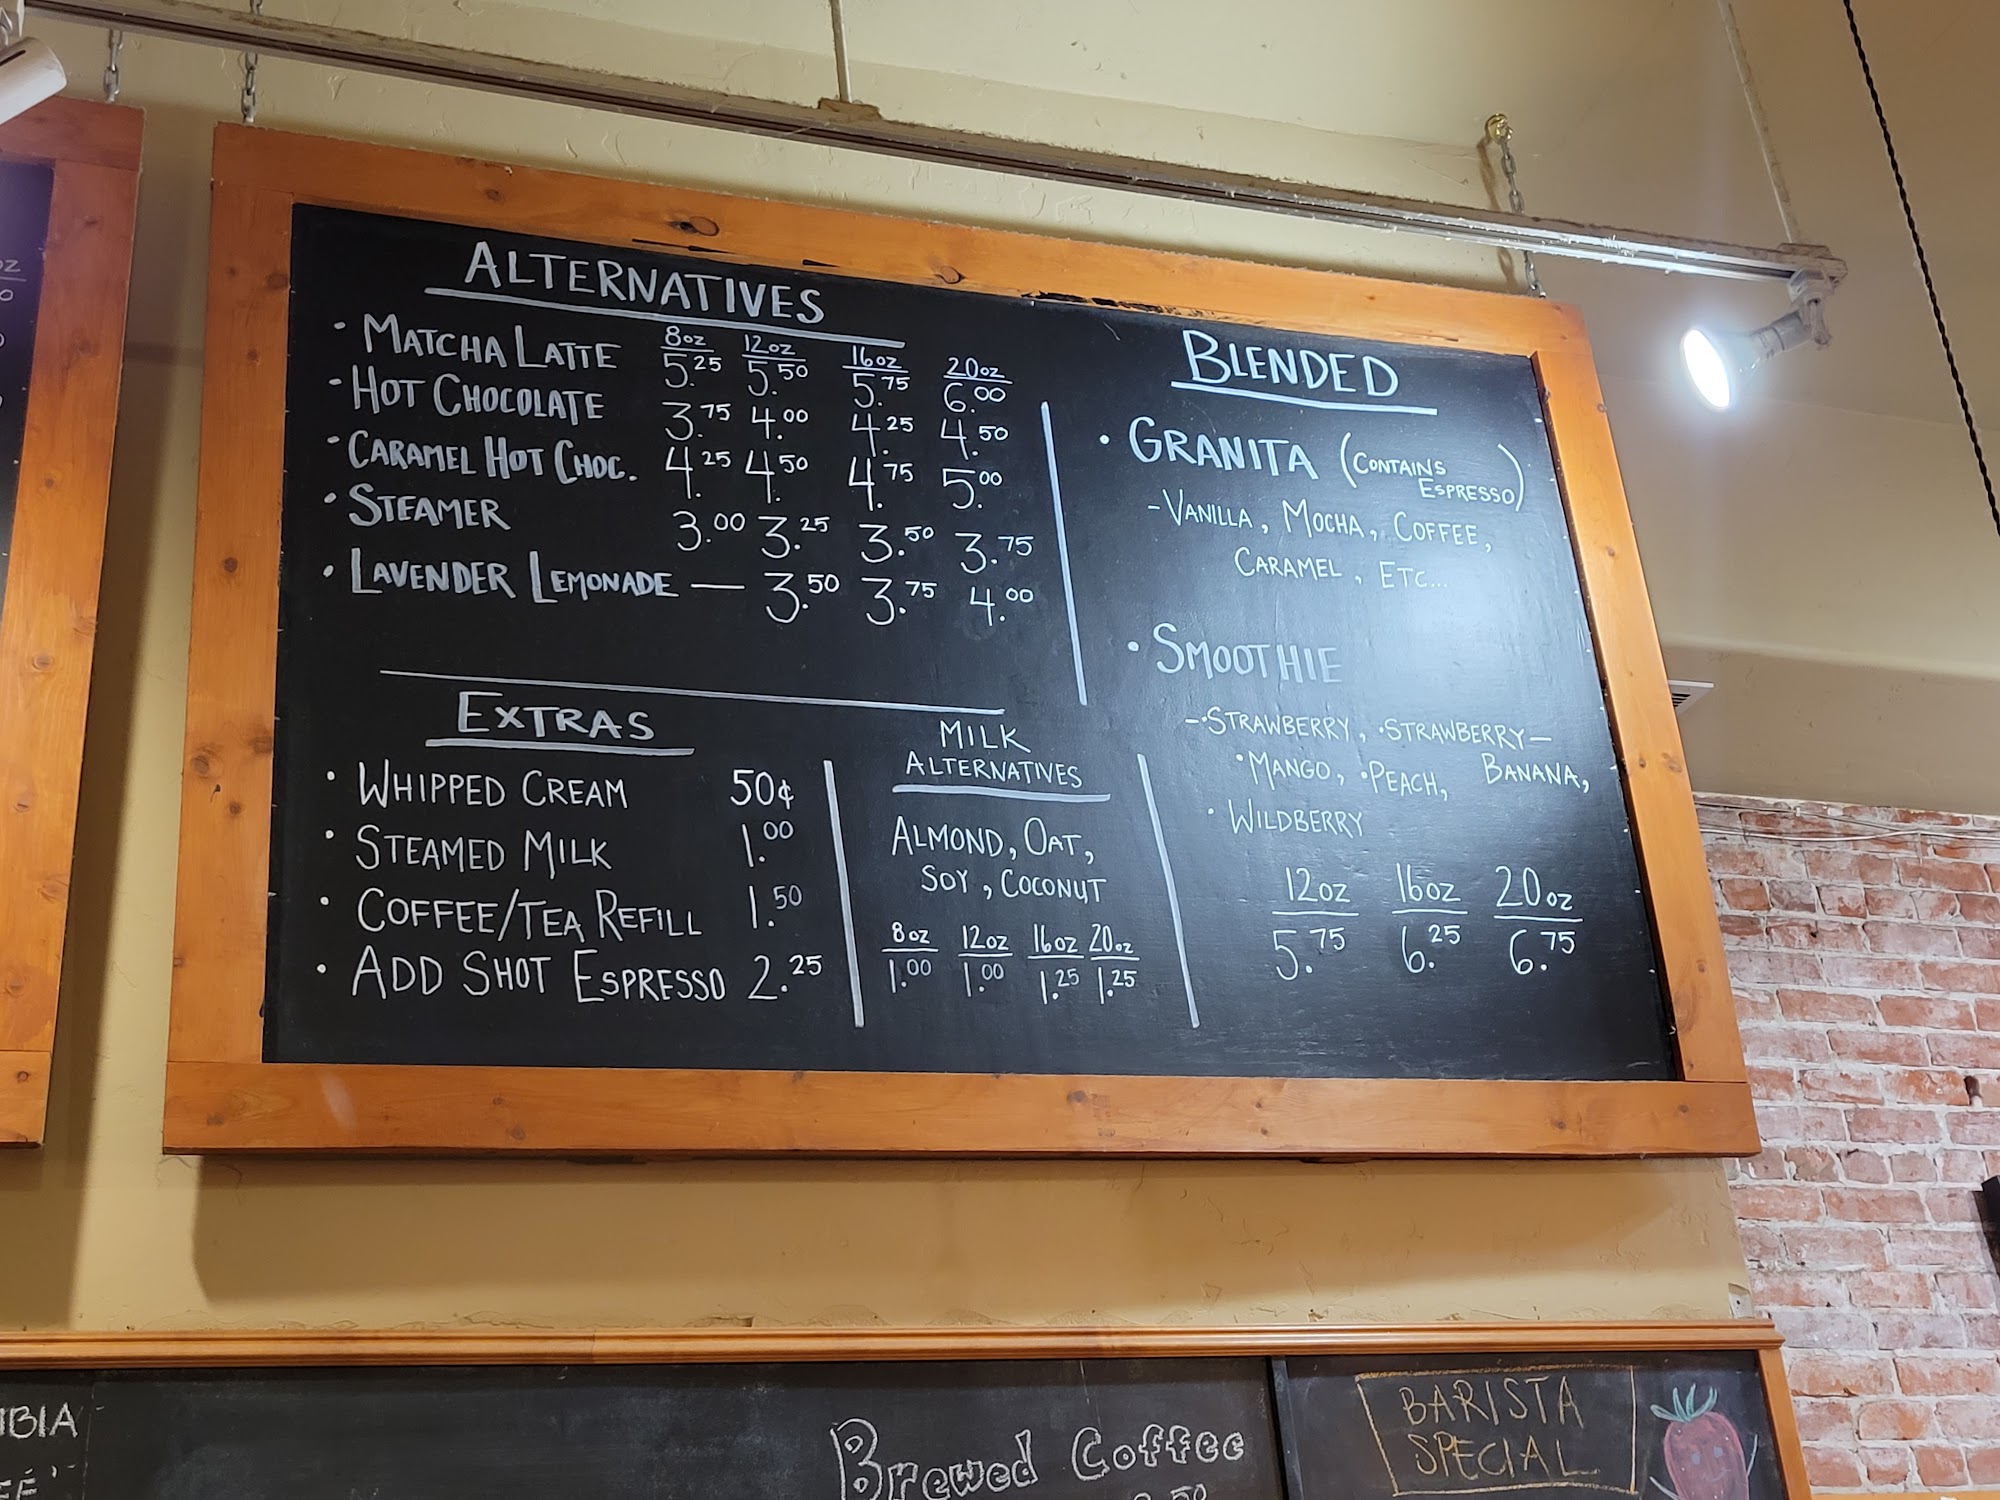 ALTERNATIVES
8oz 12oz 16oz 20oz
• MATCHA LATTE 5.25 5.50 5.75 6.00
• HOT CHOCOLATE 3.75 4.00 4.25 4.50
• CARAMEL HOT CHOC. 4.25 4.50 4.75 5.00
• STEAMER 3.00 3.25 3.50 3.75
• LAVENDER LEMONADE — 3.50 3.75 4.00
EXTRAS
• WHIPPED CREAM 50¢
• STEAMED MILK 1.00
• COFFEE/TEA REFILL 1.50
• ADD SHOT ESPRESSO 2.25
MILK
ALTERNATIVES
ALMOND, OAT,
SOY, COCONUT
8oz 12oz 16oz 20oz
1.00 1.00 1.25 1.25
BLENDED
• GRANITA (CONTAINS
ESPRESSO)
- VANILLA, MOCHA, COFFEE,
CARAMEL, ETC...
• SMOOTHIE
- • STRAWBERRY, • STRAWBERRY—
• MANGO, • PEACH, BANANA,
• WILDBERRY
12oz 16oz 20oz
5.75 6.25 6.75
Brewed Coffee
BARISTA
SPECIAL